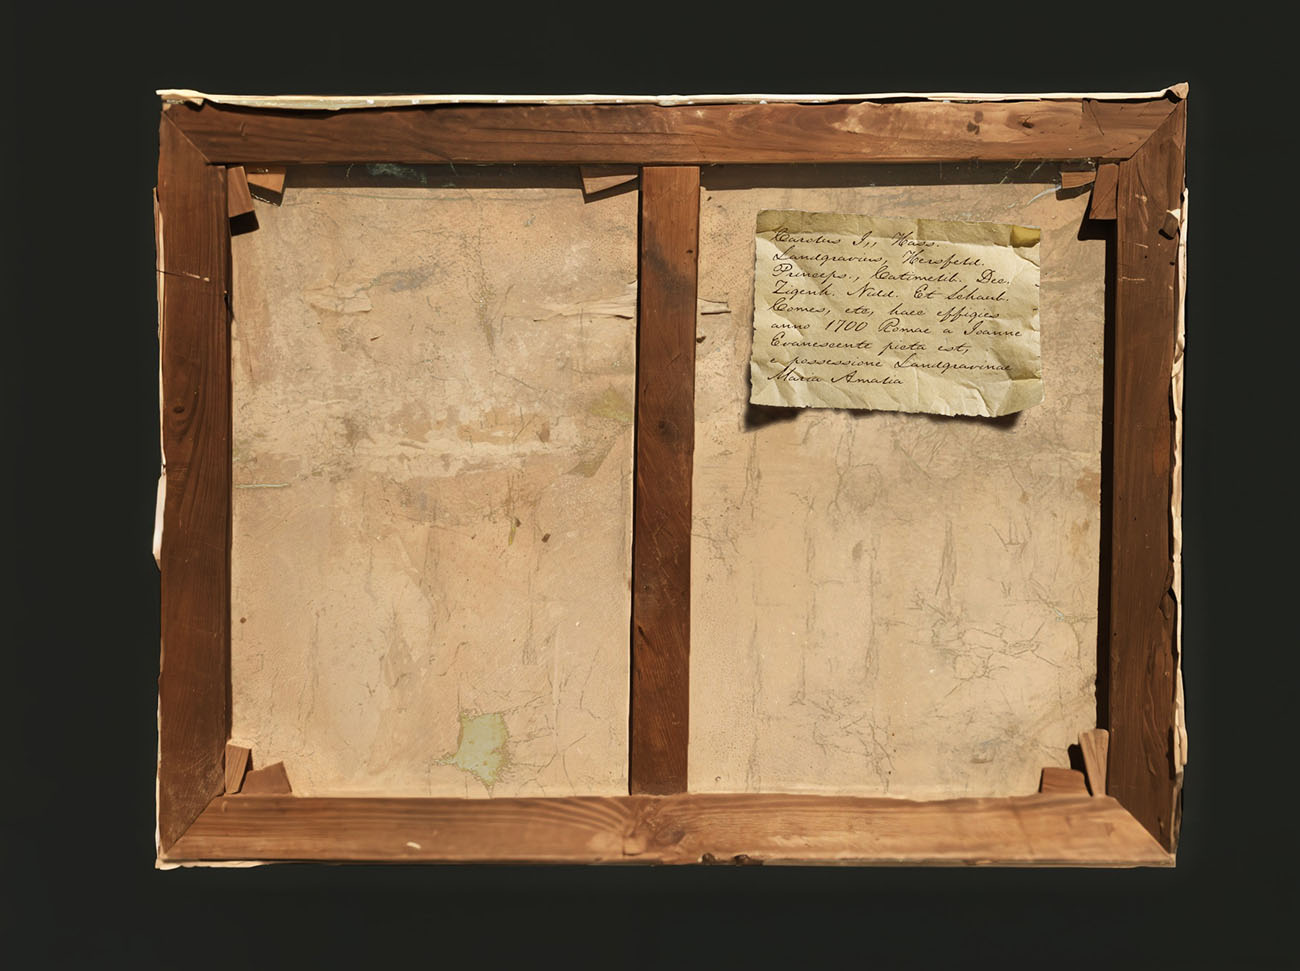 Carolus I,, Hass.
Landgravius, Hersfeld.
Princeps., Catimelib. Dec.
Zigenh. Nidd. Et Schaub.
Comes, etc, haec effigies
anno 1700 Romae a Joanne
Evanescente picta est,
e possessione Landgravinae
Maria Amalia